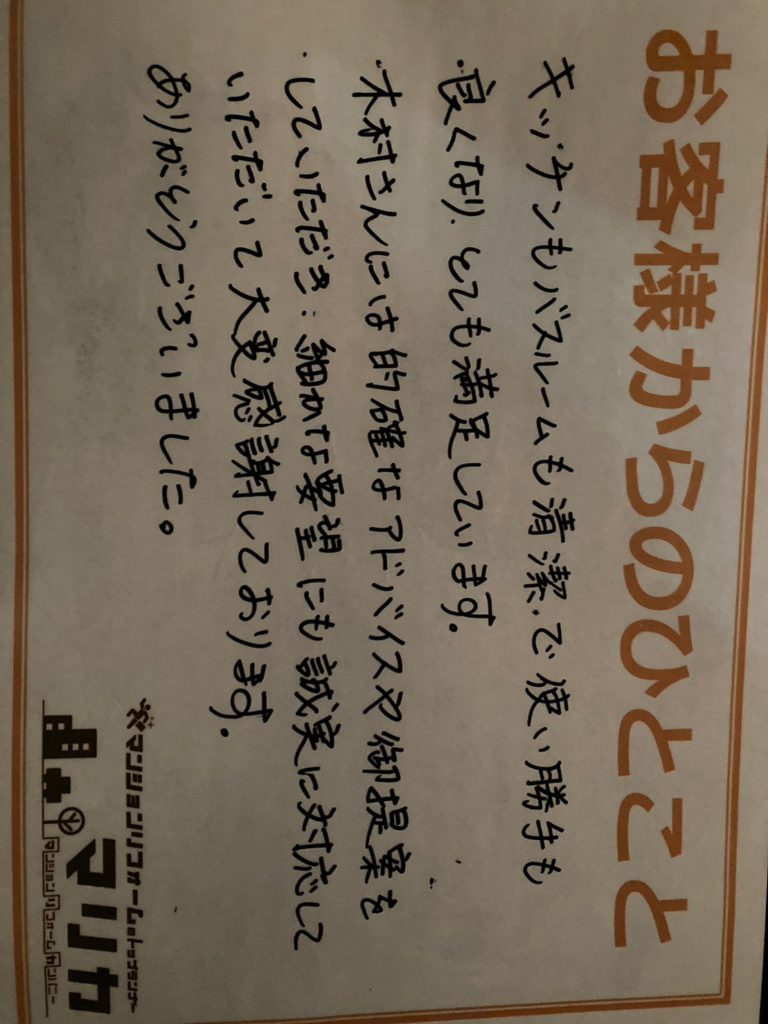 お客様からのひとこと
キッチンもバスルームも清潔で使い勝手も
良くなり、とても満足しています。
木村さんには的確なアドバイスや御提案を
していただき、細かな要望にも誠実に対応して
いただいて大変感謝しております。
ありがとうございました。
マンションリフォームのトップランナー
マリカ
マンションリフォームカンパニー